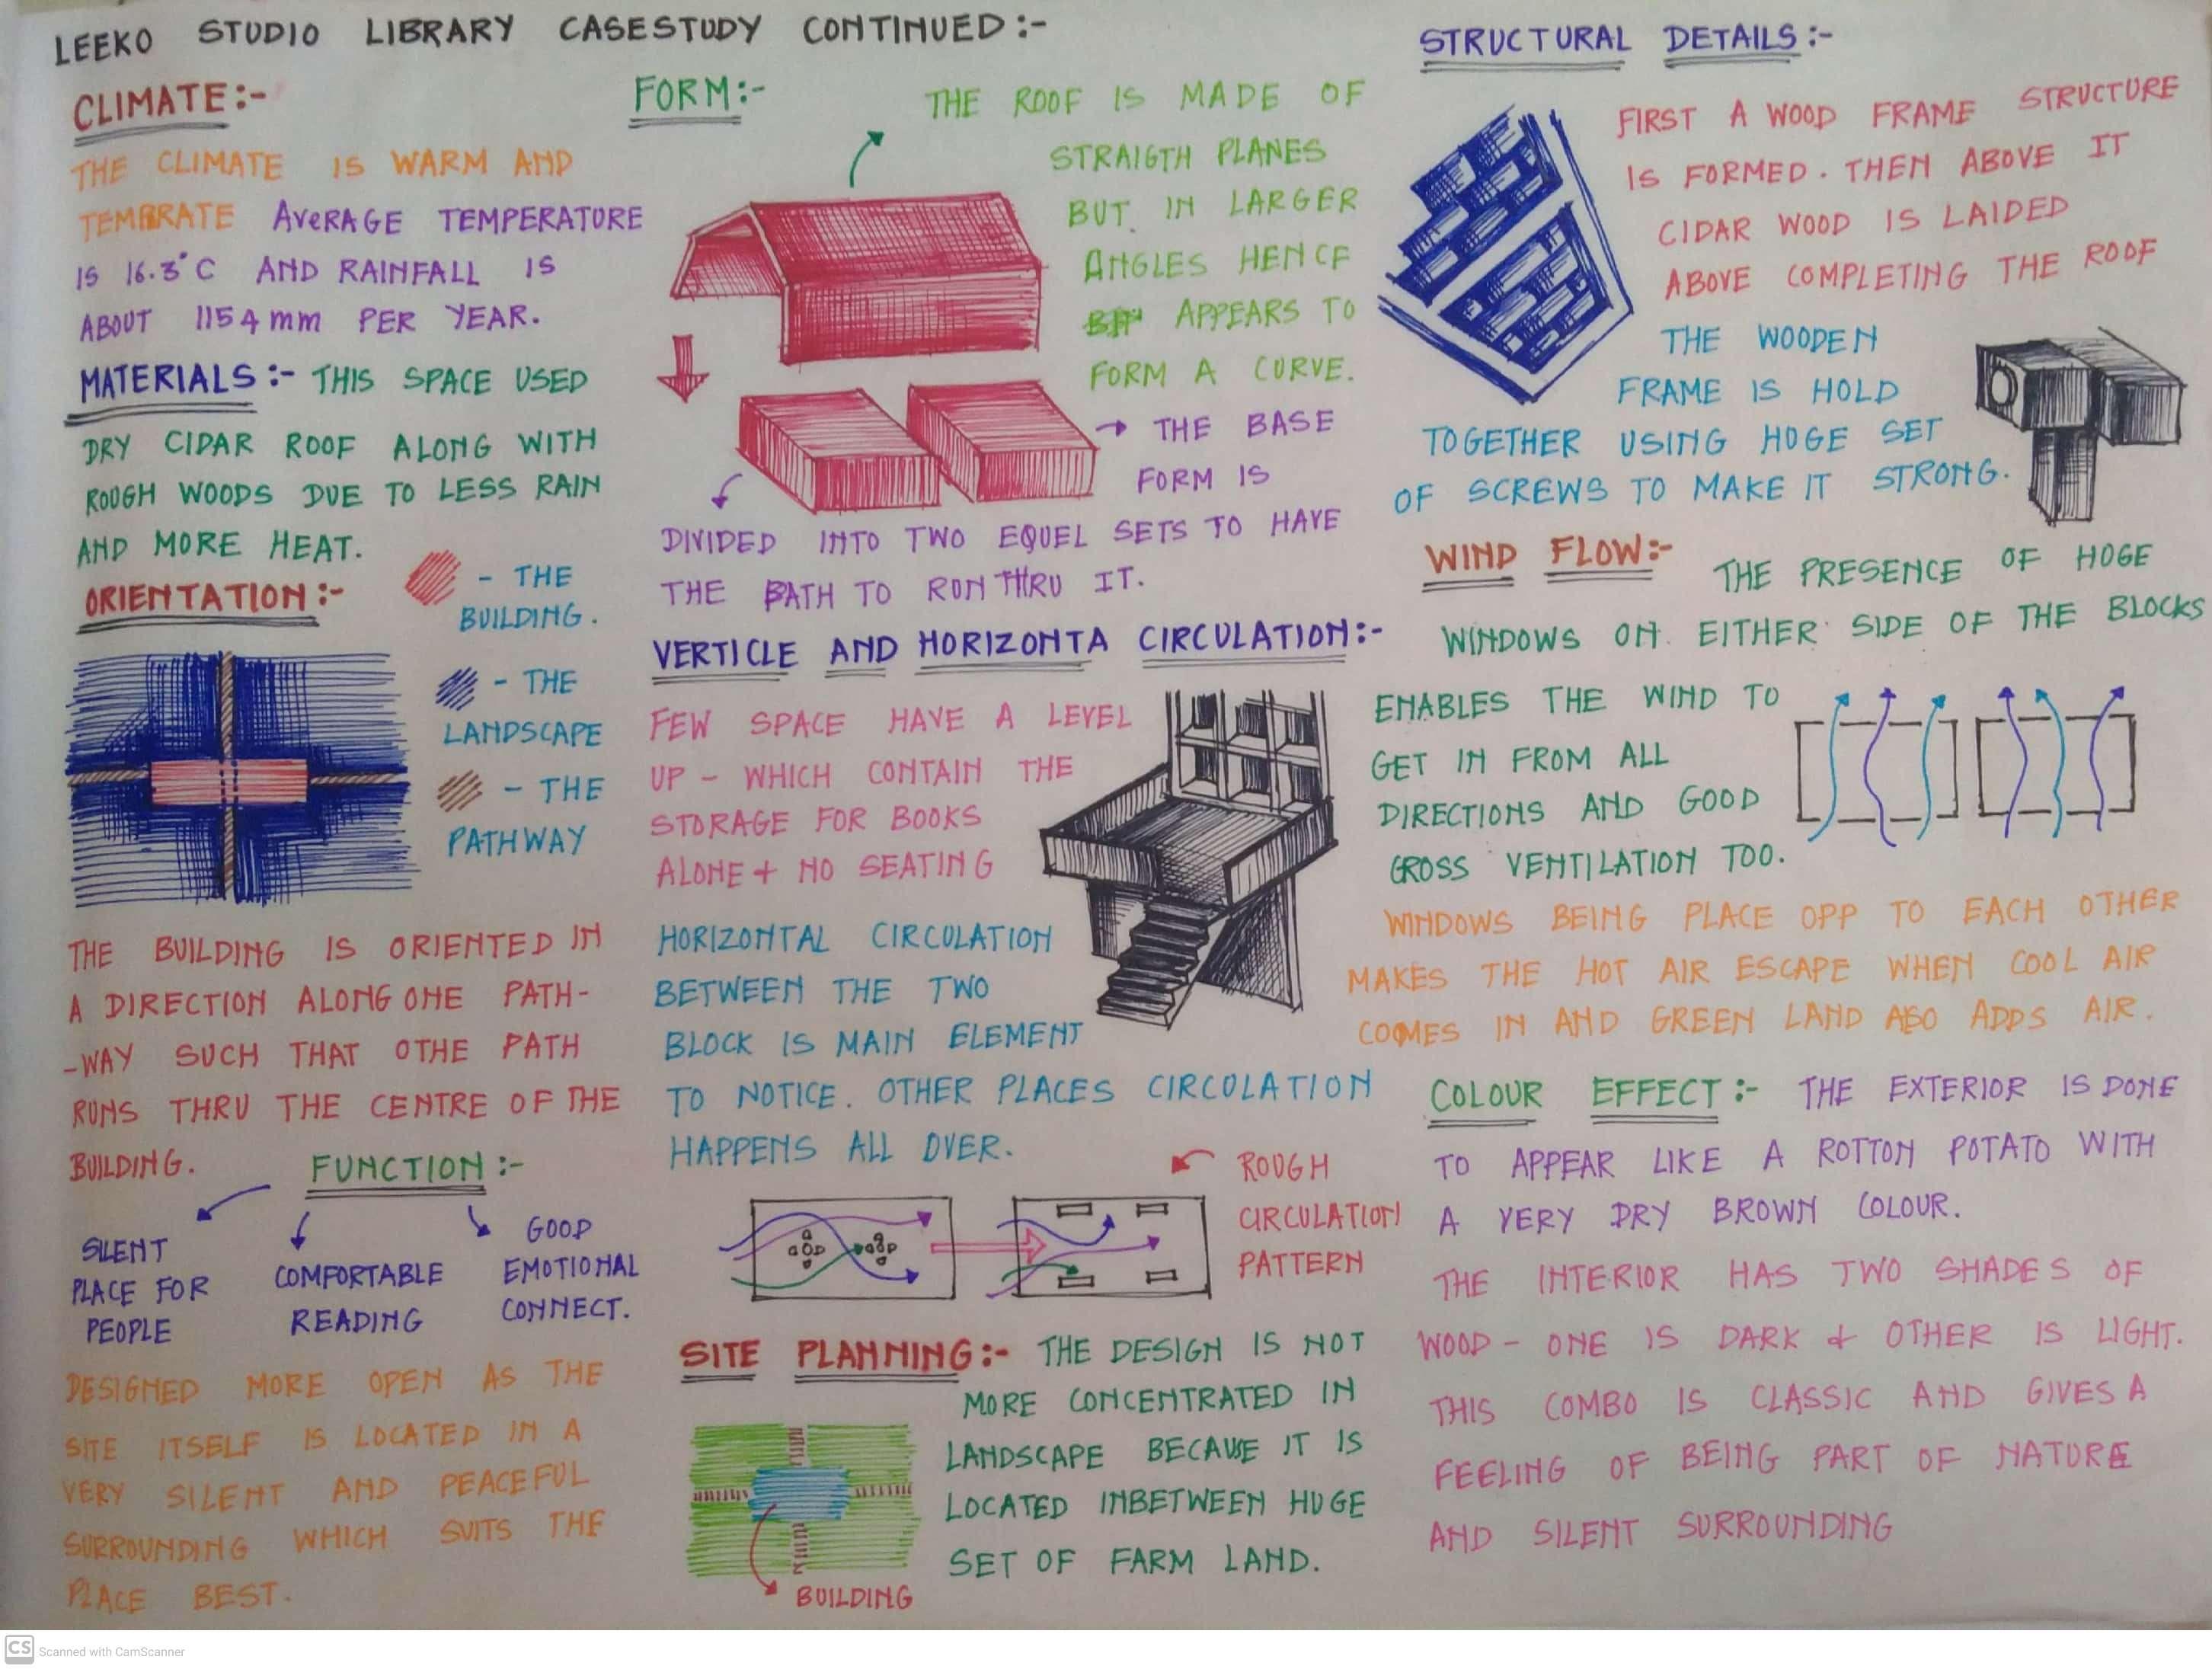 LEEKO STUDIO LIBRARY CASESTUDY CONTINUED:-
CLIMATE:-
THE CLIMATE IS WARM AND
TEMBRATE AVERAGE TEMPERATURE
IS 16.3°C AND RAINFALL IS
ABOUT 1154mm PER YEAR.
MATERIALS:- THIS SPACE USED
DRY CIDAR ROOF ALONG WITH
ROUGH WOODS DUE TO LESS RAIN
AND MORE HEAT.
ORIENTATION:-
- THE
BUILDING.
- THE
LANDSCAPE
- THE
PATHWAY
THE BUILDING IS ORIENTED IN
A DIRECTION ALONG ONE PATH-
-WAY SUCH THAT OTHE PATH
RUNS THRU THE CENTRE OF THE
BUILDING.
FUNCTION:-
SILENT
PLACE FOR
PEOPLE
COMFORTABLE
READING
GOOD
EMOTIONAL
CONNECT.
DESIGNED MORE OPEN AS THE
SITE ITSELF IS LOCATED IN A
VERY SILENT AND PEACEFUL
SURROUNDING WHICH SUITS THE
PLACE BEST.
FORM:-
THE ROOF IS MADE OF
STRAIGTH PLANES
BUT IN LARGER
ANGLES HENCE
APPEARS TO
FORM A CURVE.
→ THE BASE
FORM IS
DIVIDED INTO TWO EQUEL SETS TO HAVE
THE PATH TO RUN THRU IT.
VERTICLE AND HORIZONTA CIRCULATION:-
FEW SPACE HAVE A LEVEL
UP - WHICH CONTAIN THE
STORAGE FOR BOOKS
ALONE + NO SEATING
HORIZONTAL CIRCULATION
BETWEEN THE TWO
BLOCK IS MAIN ELEMENT
TO NOTICE. OTHER PLACES CIRCULATION
HAPPENS ALL OVER.
ROUGH
CIRCULATION
PATTERN
SITE PLANNING:- THE DESIGN IS NOT
MORE CONCENTRATED IN
LANDSCAPE BECAUSE IT IS
LOCATED INBETWEEN HUGE
SET OF FARM LAND.
BUILDING
STRUCTURAL DETAILS:-
FIRST A WOOD FRAME STRUCTURE
IS FORMED. THEN ABOVE IT
CIDAR WOOD IS LAIDED
ABOVE COMPLETING THE ROOF
THE WOODEN
FRAME IS HOLD
TOGETHER USING HUGE SET
OF SCREWS TO MAKE IT STRONG.
WIND FLOW:- THE PRESENCE OF HUGE
WINDOWS ON EITHER SIDE OF THE BLOCKS
ENABLES THE WIND TO
GET IN FROM ALL
DIRECTIONS AND GOOD
GROSS VENTILATION TOO.
WINDOWS BEING PLACE OPP TO EACH OTHER
MAKES THE HOT AIR ESCAPE WHEN COOL AIR
COMES IN AND GREEN LAND ALSO ADDS AIR.
COLOUR EFFECT:- THE EXTERIOR IS DONE
TO APPEAR LIKE A ROTTON POTATO WITH
A VERY DRY BROWN COLOUR.
THE INTERIOR HAS TWO SHADES OF
WOOD - ONE IS DARK & OTHER IS LIGHT.
THIS COMBO IS CLASSIC AND GIVES A
FEELING OF BEING PART OF NATURE
AND SILENT SURROUNDING
CS Scanned with CamScanner